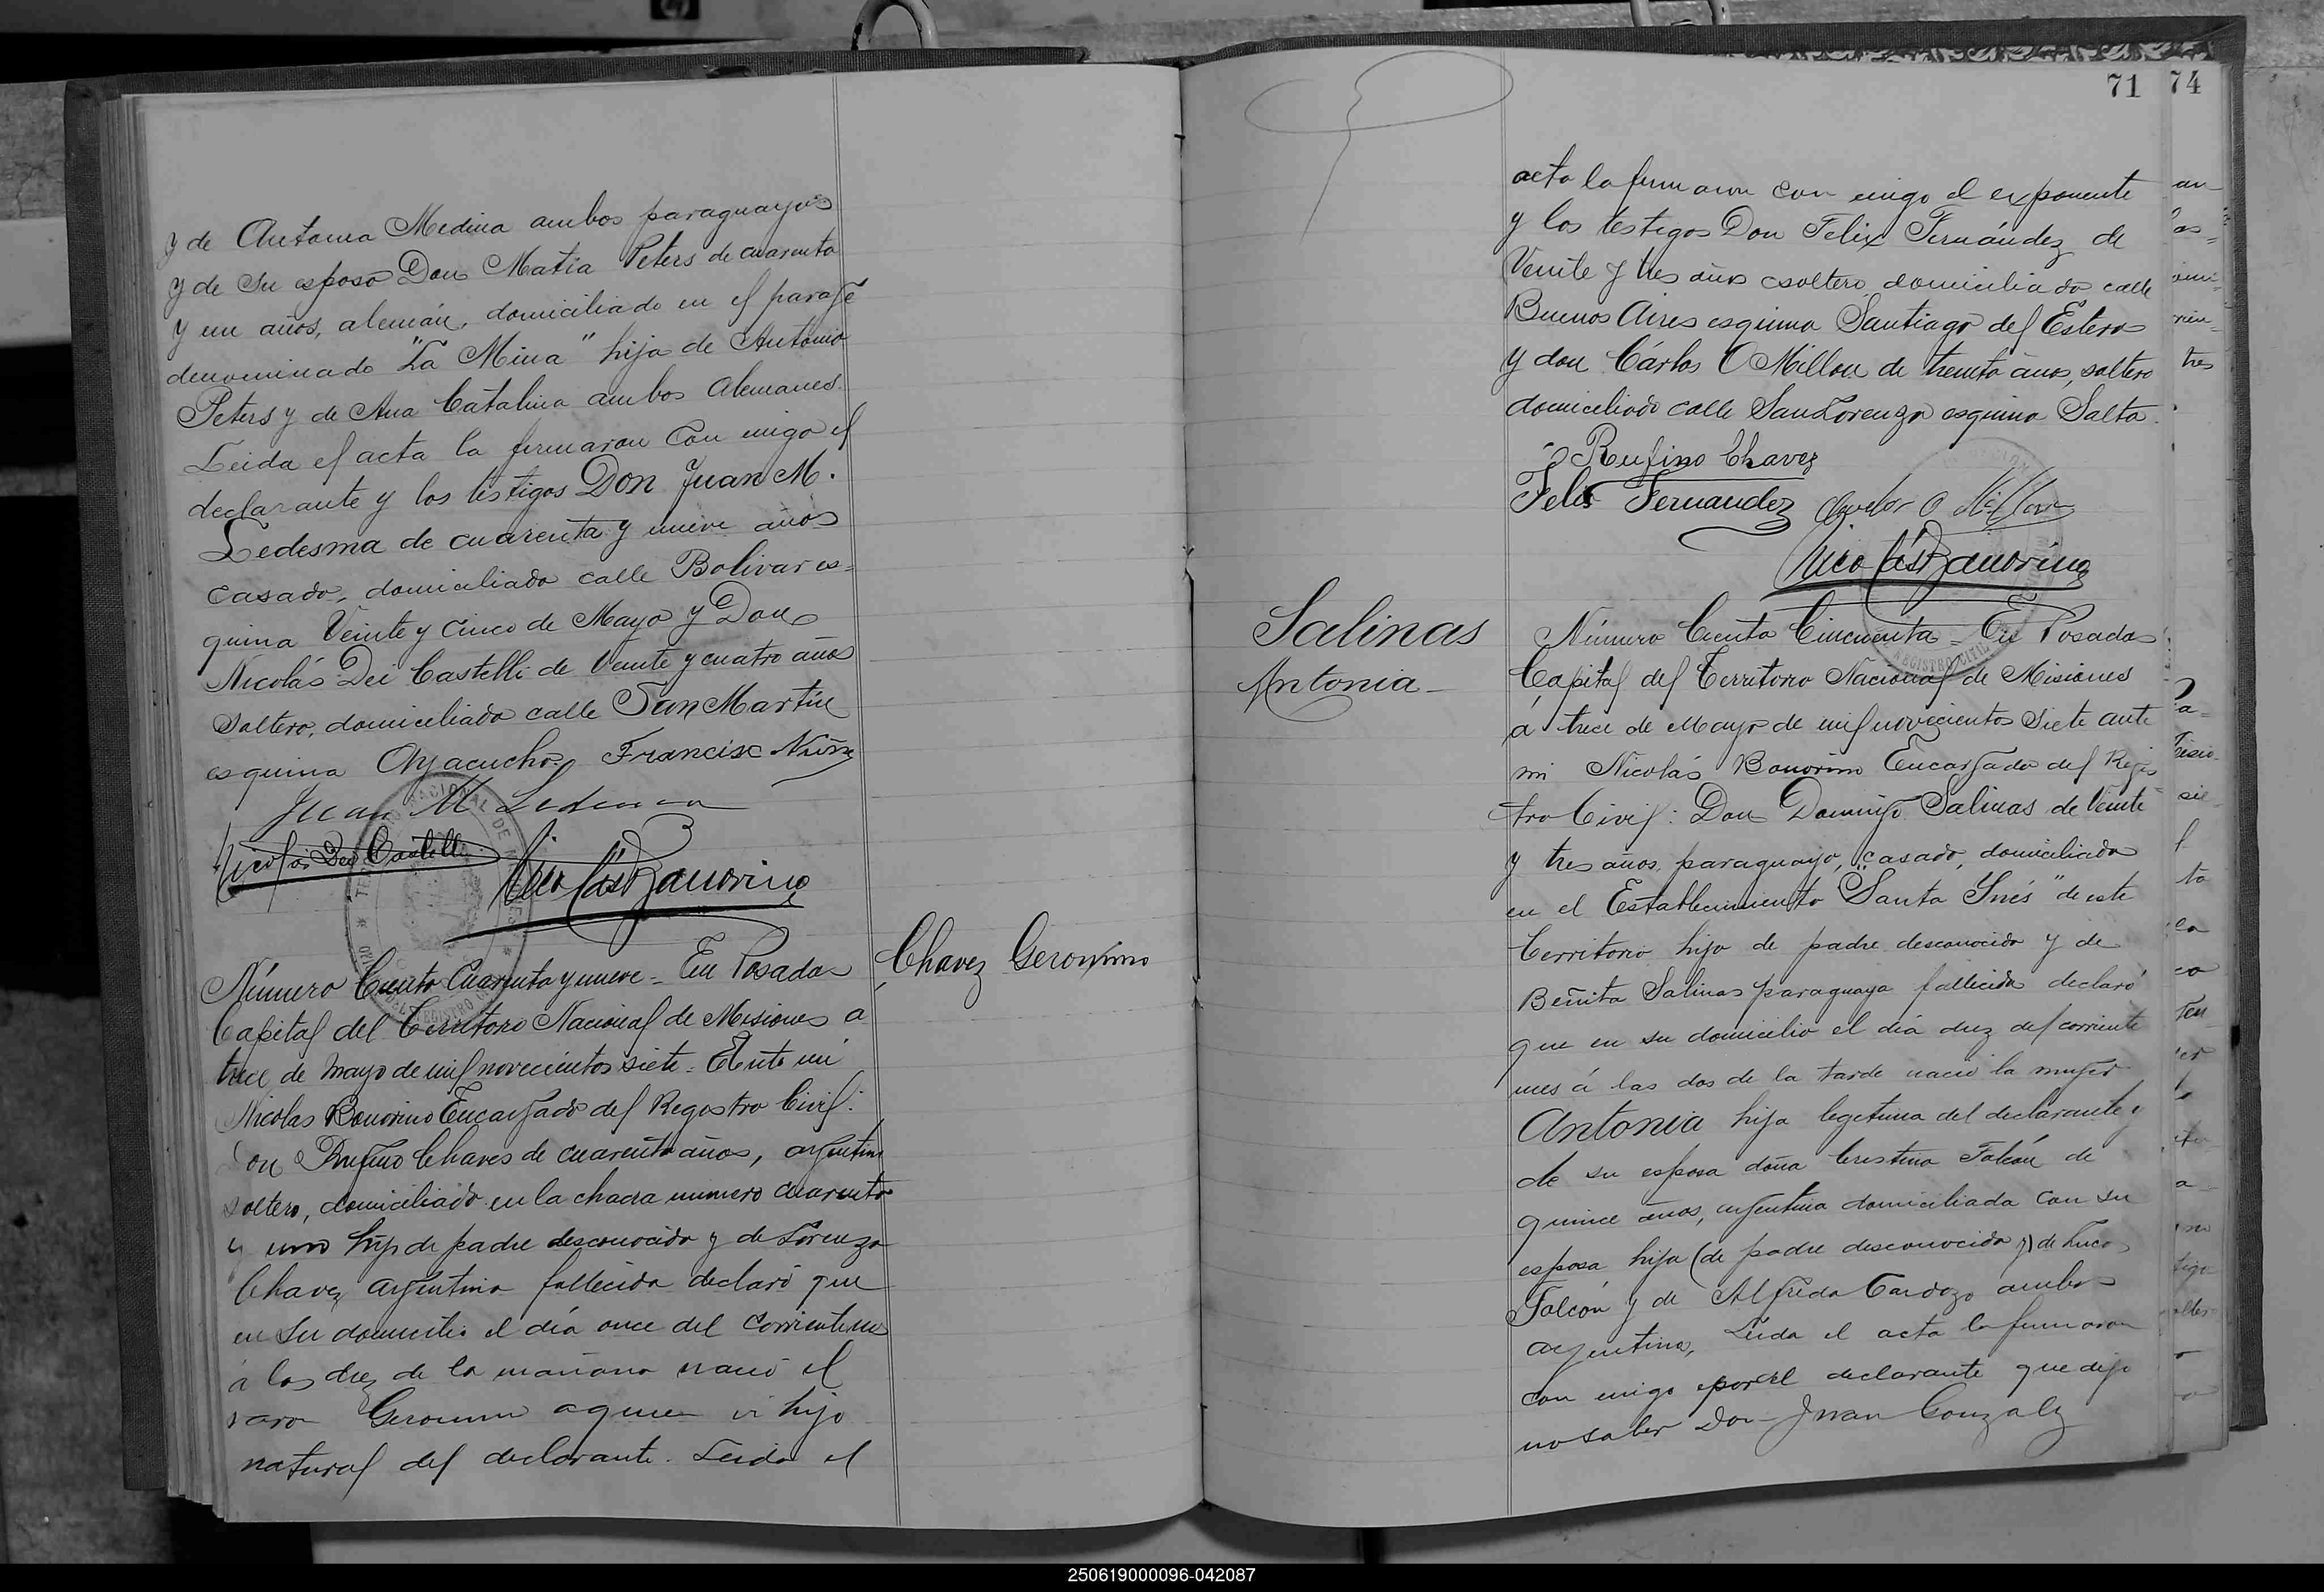 y de Antonia Medina ambos paraguayos
y de su esposo Don Matia Peters de cuarenta
y un años, alemán, domiciliado en el paraje
denominado "La Mina" hija de Antonio
Peters y de Ana Catalina ambos Alemanes.
Leida el acta la firmaron con migo el
declarante y los testigos Don Juan M.
Ledesma de cuarenta y nueve años
casado, domiciliado calle Bolivar es=
quina Veinte y Cinco de Mayo y Don
Nicolás Dei Castelli de Veinte y cuatro años
soltero, domiciliado calle San Martín
esquina Ayacucho. Francisc Nuñe
Juan M Ledesma
Nicolás Dei Castelli
Nicolás Bonorino
Número Ciento Cuarenta y nueve = En Posadas
Capital del Territorio Nacional de Misiones a
trece de Mayo de mil novecientos siete = Ante mi
Nicolas Bonorino Encargado del Registro Civil:
Don Rufino Chaves de cuarenta años, argentino
soltero, domiciliado en la chacra numero cuarenta
y uno hijo de padre desconocido y de Lorenza
Chavez argentina fallecida declaró que
en su domicilio el día once del corriente mes
á las diez de la mañana nació el
varon Geronimo a quien hijo
natural del declarante. Leida el
Chavez Geronimo
71
74
acta la firmaron con migo el exponente
y los testigos Don Felix Fernández de
Veinte y tres años soltero domiciliado calle
Buenos Aires esquina Santiago del Estero
y don Cárlos O Millon de treinta años, soltero
domiciliado calle San Lorenzo esquina Salta.
Rufino Chavez
Felix Fernandez
O Millon
Nicolás Bonorino
Salinas
Antonia
Número Ciento Cincuenta = En Posadas
Capital del Territorio Nacional de Misiones
á trece de Mayo de mil novecientos siete ante
mi Nicolás Bonorino Encargado del Regis
tro Civil: Don Domingo Salinas de Veinte
y tres años, paraguayo, casado, domiciliado
en el Establecimiento "Santa Ynés" de este
Territorio hijo de padre desconocido y de
Benita Salinas paraguaya fallecida declaró
que en su domicilio el día diez del corriente
mes á las dos de la tarde nació la mujer
Antonia hija legitima del declarante y
de su esposa doña Cristina Falcón de
quince años, argentina domiciliada con su
esposo hija (de padre desconocido y) de Luca
Falcón y de Alfreda Cardozo ambos
argentinos, Leida el acta la firmaron
con migo por el declarante que dijo
no saber Don Juan Gonzalez
250619000096-042087